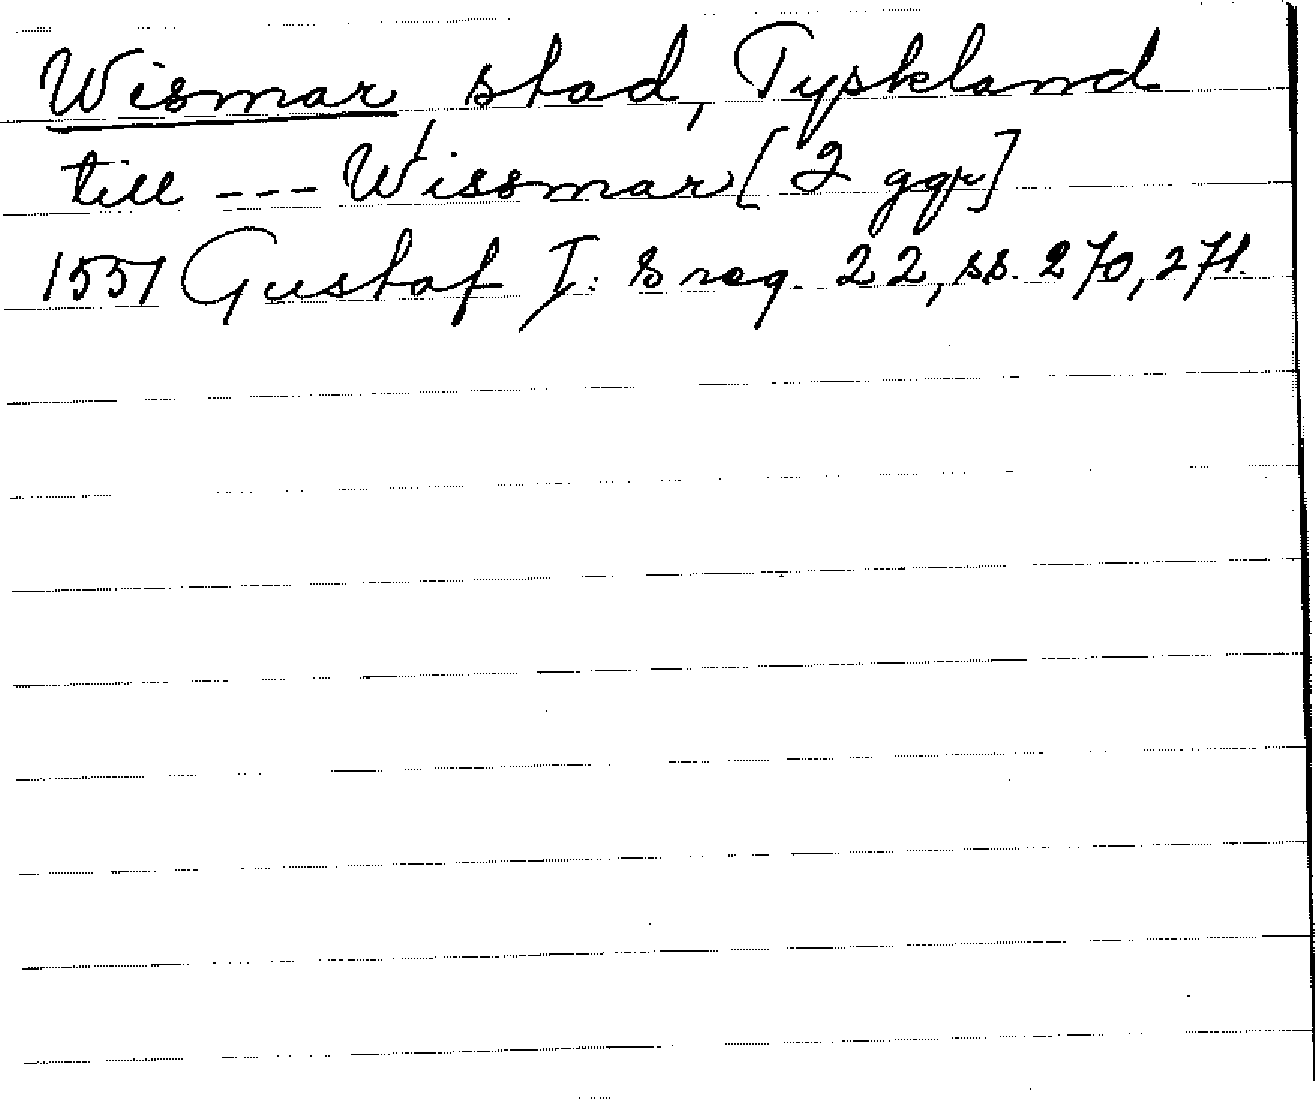 Wismar stad, Tyskland
till --- Wissmar [2 ggr]
1551 Gustaf I:s reg. 22, ss. 270, 271.